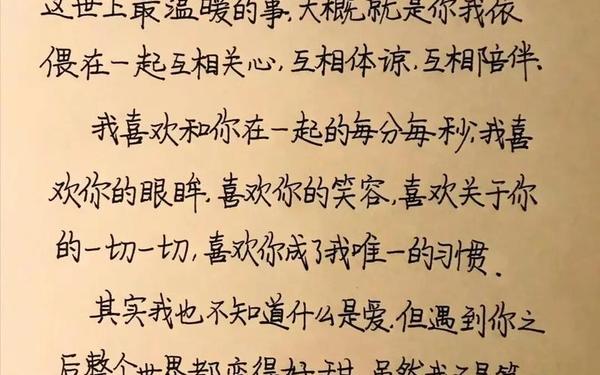 这世上最温暖的事,大概就是你我依
偎在一起互相关心,互相体谅,互相陪伴.
我喜欢和你在一起的每分每秒,我喜
欢你的眼眸,喜欢你的笑容,喜欢关于你
的一切一切,喜欢你成了我唯一的习惯.
其实我也不知道什么是爱,但遇到你之
后整个世界都变得好甜,虽然我不是第